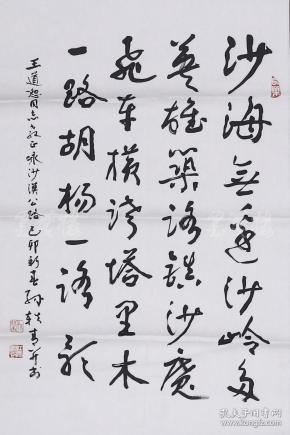 沙海無邊沙岭多
英雄築路鎮沙魔
飛車横跨塔里木
一路胡杨一路歌
王道恕同志教正 咏沙漠公路 己卯新春 孙轶青并书
孔夫子旧书网